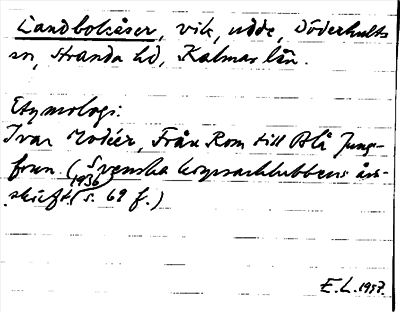 Landbokåser, vik, udde, Döderhults
sn, Stranda hd, Kalmar län.
Etymologi:
Ivar Modéer, Från Rom till Blå Jung-
frun (Svenska kryssarklubbens års-
skrift 1936 s. 69 f.)
E.L. 1957.